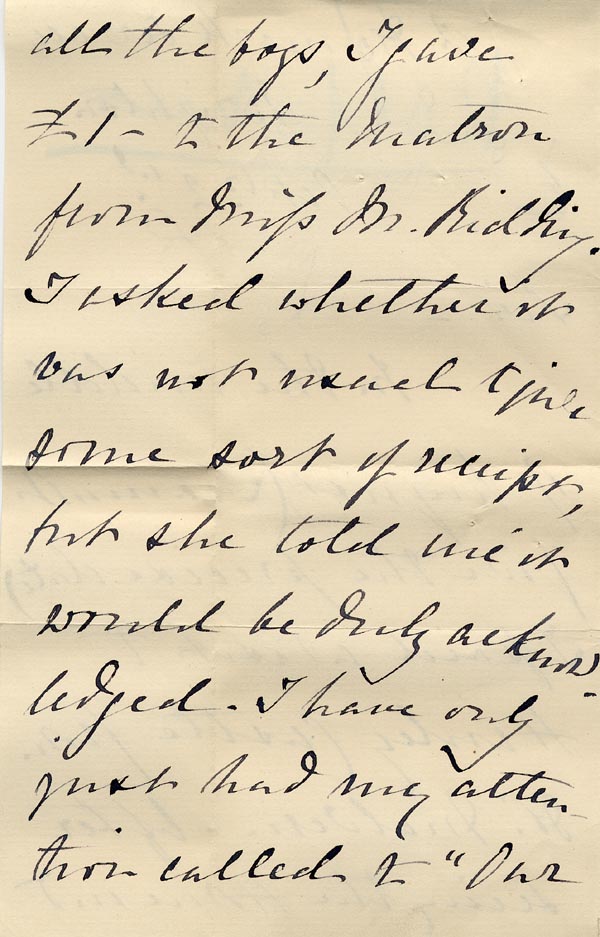 all the boys, I gave
£1 - to the Matron
from Miss M. Ridding.
I asked whether it
was not usual to give
some sort of receipt,
but she told me it
would be duly acknow-
ledged. I have only
just had my atten-
tion called to "Our